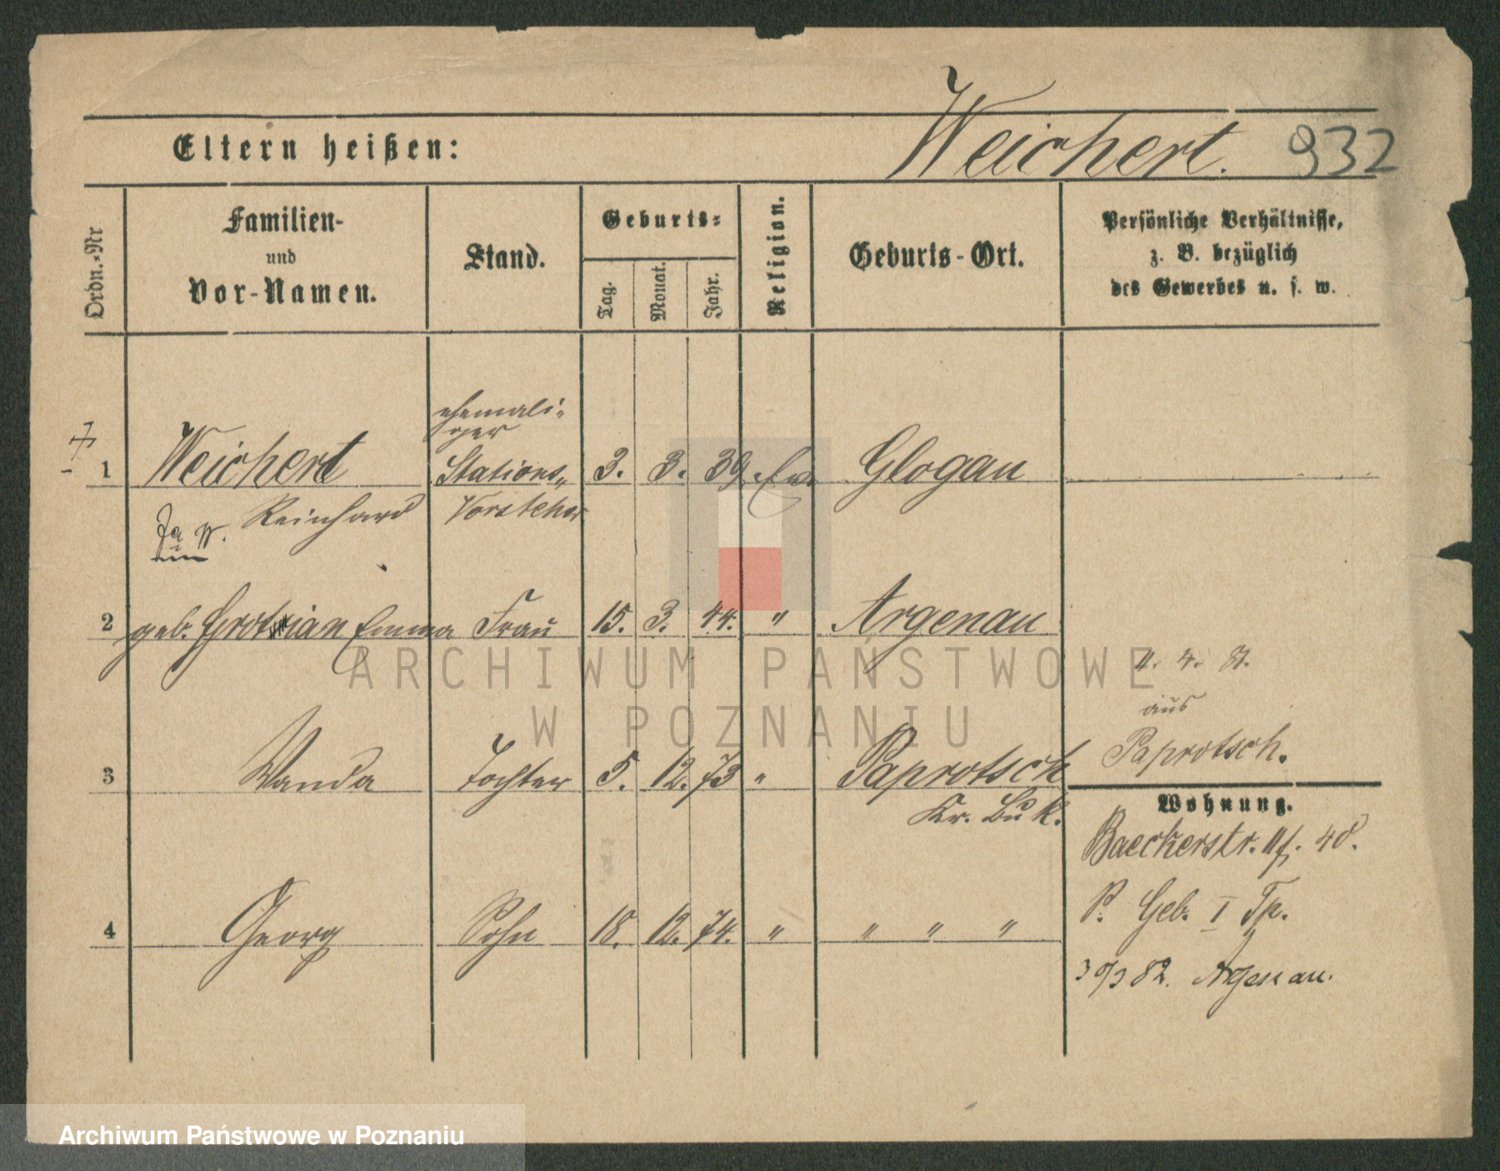 Weichert. 932
Eltern heißen:
Ordn.-Nr
Familien-
und
Vor-Namen.
Stand.
Geburts-
Tag.
Monat.
Jahr.
Religion.
Geburts-Ort.
Persönliche Verhältnisse,
z. B. bezüglich
des Gewerbes u. s. w.
ehemali-
ger
1 Weichert Stations- 3. 3. 39 Ev. Glogau
Reinhard Vorsteher
2 geb. Grotrian Emma Frau 15. 3. 44. " Argenau
11. 4. 81.
aus
Paprotsch.
3 Wanda Tochter 5. 12. 73 " Paprotsch
Kr. Buk.
Wohnung.
Baeckerstr. 40.
4 Georg Sohn 18. 12. 74. " " " "
P. Geb. I Tp.
3 0/3 82. Argenau.
ARCHIWUM PAŃSTWOWE
W POZNANIU
Archiwum Państwowe w Poznaniu